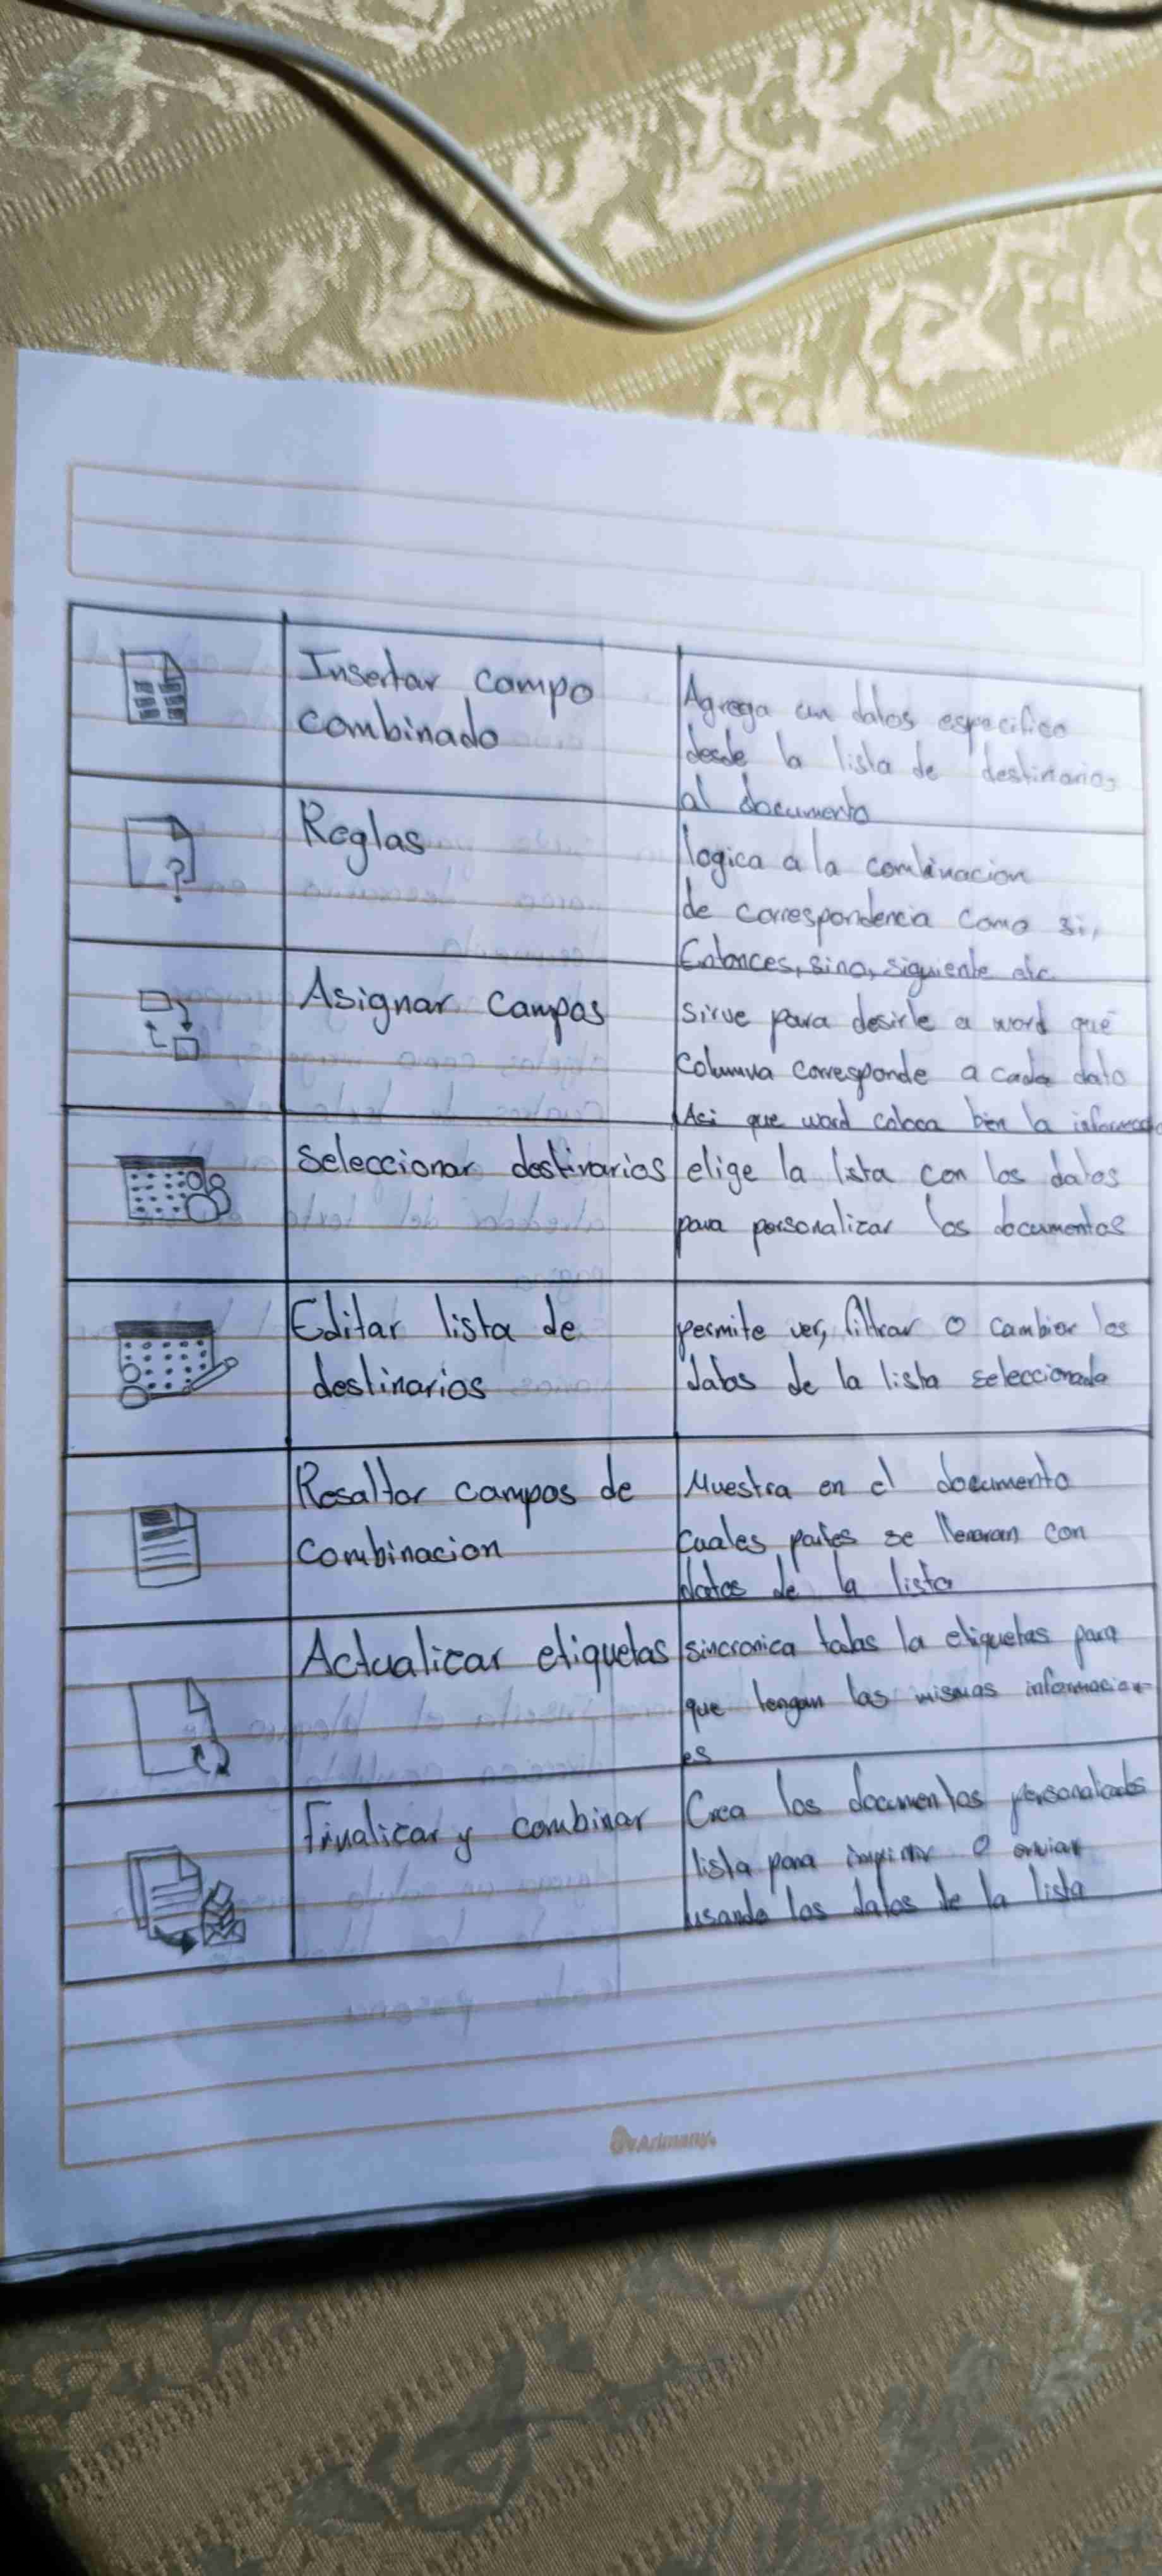 Insertar campo
combinado
Agrega un datos especifico
desde la lista de destinarios
al documento
Reglas
logica a la combinacion
de correspondencia como si,
Entonces, sino, siguiente etc.
Asignar campos
sirve para desirle a word qué
columna corresponde a cada dato
Asi que word coloca bien la informacio
seleccionar destinarios
elige la lista con los datos
para personalizar los documentos
Editar lista de
destinarios
permite ver, filtrar o cambiar los
datos de la lista seleccionada
Resaltar campos de
combinacion
Muestra en el documento
cuales partes se llenaran con
datos de la lista
Actualicar etiquetas
sincronica todas la etiquetas para
que tengan las mismas informacion
es
Finalicar y combinar
Crea los documentos personalicados
lista para imprimir o enviar
usando los datos de la lista
Arimany